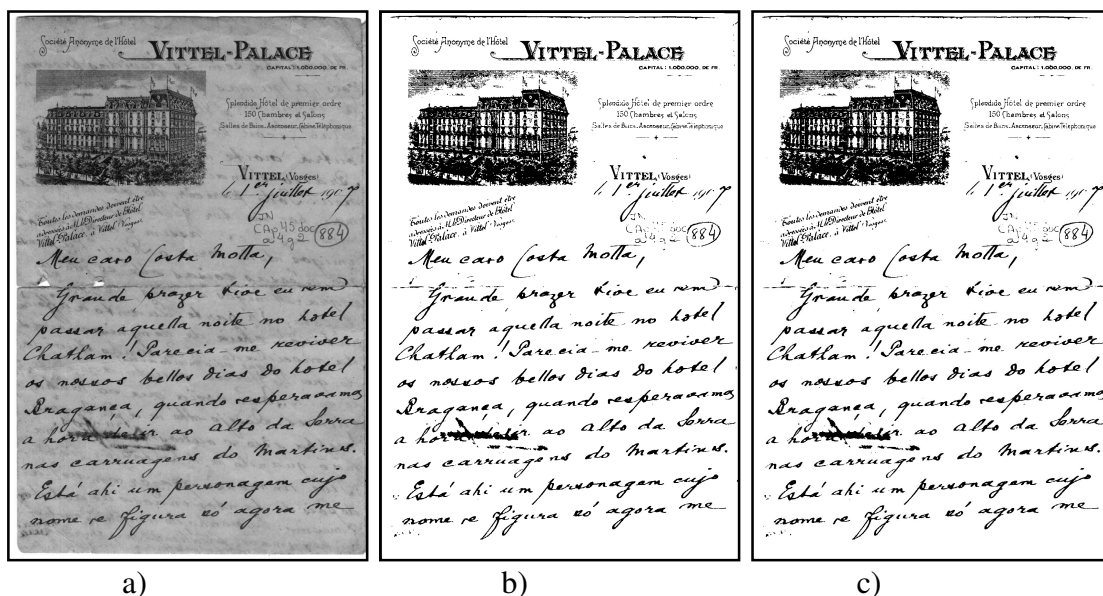 Société Anonyme de l'Hôtel
VITTEL-PALACE
CAPITAL: 1.000.000. DE FR.
Splendide Hôtel de premier ordre
150 Chambres et Salons
Salles de Bains, Ascenseur, Cabine Téléphonique
VITTEL (Vosges)
1er juillet 1907
Toutes les demandes doivent être
adressées à M. le Directeur de l'Hôtel
Vittel-Palace, à Vittel - Vosges.
JN
CAp 45 doc
2492
884
Meu caro Costa Motta,
Grande prazer tive eu em
passar aquella noite no hotel
Chatham! Parecia-me reviver
os nossos bellos dias do hotel
Braganca, quando esperavamos
a hora de ir ao alto da Serra
nas carruagens do Martins.
Está ahi um personagem cujo
nome se figura só agora me
a)
Société Anonyme de l'Hôtel
VITTEL-PALACE
CAPITAL: 1.000.000. DE FR.
Splendide Hôtel de premier ordre
150 Chambres et Salons
Salles de Bains, Ascenseur, Cabine Téléphonique
VITTEL (Vosges)
1er juillet 1907
Toutes les demandes doivent être
adressées à M. le Directeur de l'Hôtel
Vittel-Palace, à Vittel - Vosges.
JN
CAp 45 doc
2492
884
Meu caro Costa Motta,
Grande prazer tive eu em
passar aquella noite no hotel
Chatham! Parecia-me reviver
os nossos bellos dias do hotel
Braganca, quando esperavamos
a hora de ir ao alto da Serra
nas carruagens do Martins.
Está ahi um personagem cujo
nome se figura só agora me
b)
Société Anonyme de l'Hôtel
VITTEL-PALACE
CAPITAL: 1.000.000. DE FR.
Splendide Hôtel de premier ordre
150 Chambres et Salons
Salles de Bains, Ascenseur, Cabine Téléphonique
VITTEL (Vosges)
1er juillet 1907
Toutes les demandes doivent être
adressées à M. le Directeur de l'Hôtel
Vittel-Palace, à Vittel - Vosges.
JN
CAp 45 doc
2492
884
Meu caro Costa Motta,
Grande prazer tive eu em
passar aquella noite no hotel
Chatham! Parecia-me reviver
os nossos bellos dias do hotel
Braganca, quando esperavamos
a hora de ir ao alto da Serra
nas carruagens do Martins.
Está ahi um personagem cujo
nome se figura só agora me
c)